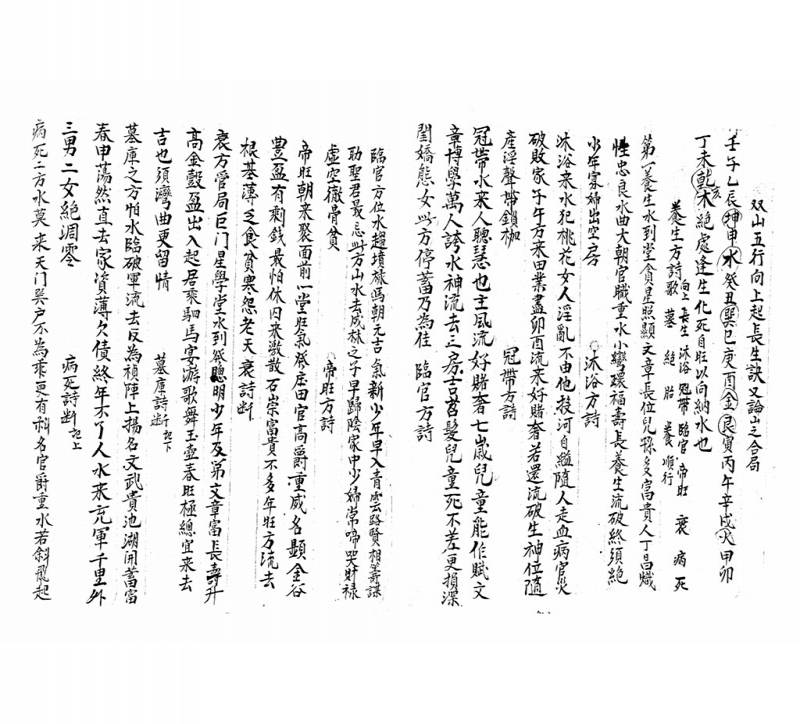 双山五行向上起長生訣又論山之合局
壬子乙辰坤申水癸丑巽巳庚酉金艮寅丙午辛戌火甲卯
丁未乾亥木絕處逢生化死自旺以向納水也
向上長生 沐浴 冠帶 臨官 帝旺 衰 病 死
養生方詩歌 墓 絕 胎 養順行
第一養生水到堂貪星照顯文章長位兒孫多富貴人丁昌熾
性忠良水曲大朝官職重水小彎環福壽長養生流破終須絕
少年寡婦出空房 沐浴方詩
沐浴來水犯桃花女人淫亂不由他投河自縊隨人走血病官災
破敗家子午方來田業盡卯酉流來好賭奢若還流破生神位隨
產淫聲帶鎖枷 冠帶方詩
冠帶水來人聰慧也主風流好賭奢七歲兒童能作賦文
章博學萬人誇水神流去三房吉苕髮兒童死不差更損深
閨嬌態女此方停蓄乃為佳 臨官方詩
臨官方位水趨墳旅馬朝元吉氣新少年早入青雲路賢相籌謀
助聖君最忌此方山水去成材之子早歸陰家中少婦常啼哭財祿
虛空徹骨貧 帝旺方詩
帝旺朝來聚面前一堂旺氣發庄田官高爵重威名顯金谷
豐盈有剩錢最怕休囚來激散石崇富貴不多年旺方流去
根基薄乏食貧寒怨老天 衰詩断
衰方管局巨门星學堂水到發聰明少年及第文章富長壽升
高金穀盈出入起居乘駟馬宴游歌舞玉壺春旺極總宜來去
吉也須灣曲更留情 墓庫詩断 起下
墓庫之方怕水臨破軍流去反為禎陣上揚名文武貴池湖閒蓄富
春申蕩然直去家資薄欠債終年不了人水来充軍千里外
三男二女絕凋零 病死詩断 起上
病死二方水莫来天门巽户不為乖更有科名官爵重水若斜飛起